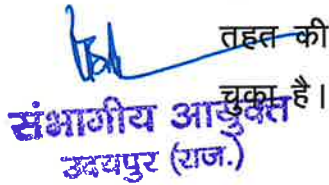 तहत की
चुका है।
संभागीय आयुक्त
उदयपुर (राज.)